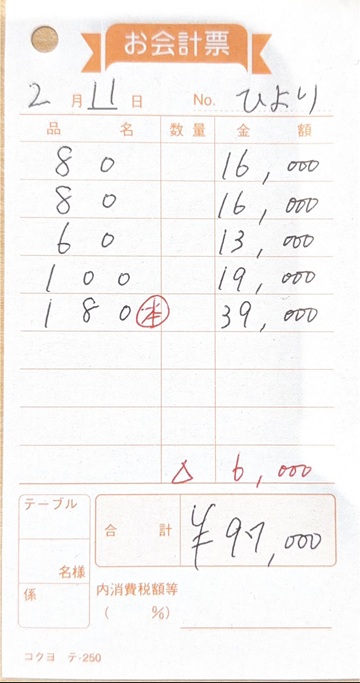 お会計票
2月11日 No. ひより
品名 数量 金額
80 16,000
80 16,000
60 13,000
100 19,000
180 39,000
△ 6,000
テーブル
合計 ¥97,000
名様
係
内消費税額等
( %)
コクヨ テ-250